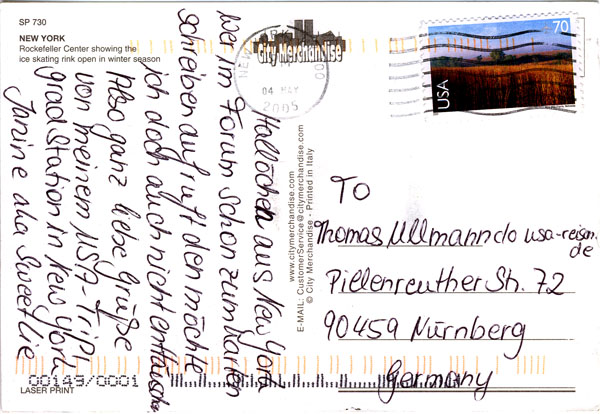 SP 730
NEW YORK
Rockefeller Center showing the
ice skating rink open in winter season
City Merchandise
NEW YORK
04 MAY
2005
70
USA
Hallöchen aus New York
wer im Forum schon zum Karten
schreiben aufruft den möchte
ich doch auch nicht enttäuschen
Also ganz liebe Grüße
von meinem USA-Trip!
Grad Station in New York
Janine aka Sweetlie
www.citymerchandise.com
E-MAIL: CustomerService@citymerchandise.com
© City Merchandise - Printed in Italy
TO
Thomas Ullmann c/o usa-reisen.
de
Pillenreuther Str. 72
90459 Nürnberg
Germany
00149/0001
LASER PRINT